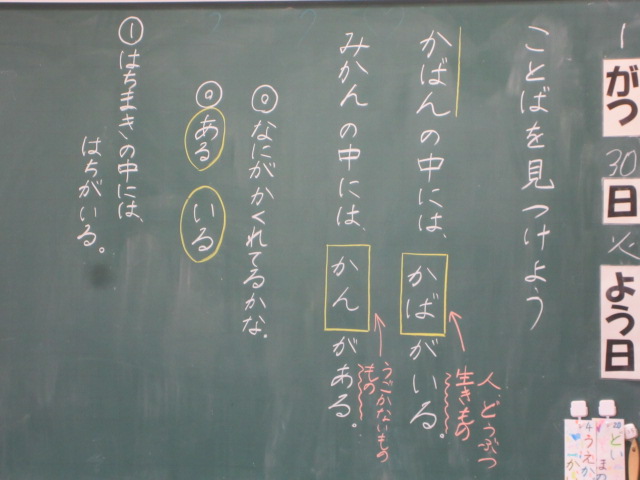 1がつ30日火よう日
ことばを見つけよう
かばんの中には、かばがいる。
人、どうぶつ
生きもの
みかんの中には、かんがある。
うごかないもの
もの
◎なにがかくれてるかな。
◎ある いる
①はちまきの中には、
はちがいる。